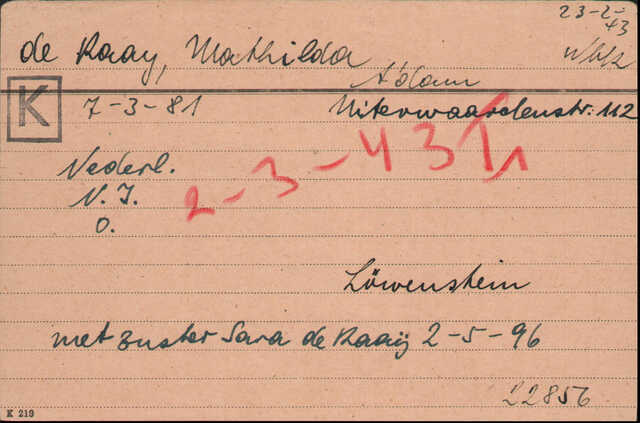 23-2-
43
de Raay, Mathilda
A'dam
K
7-3-81
Uiterwaardenstr: 112
Nederl.
2-3-43
N.I.
O.
Löwenstein
met zuster Sara de Raaÿ 2-5-96
22856
K 219